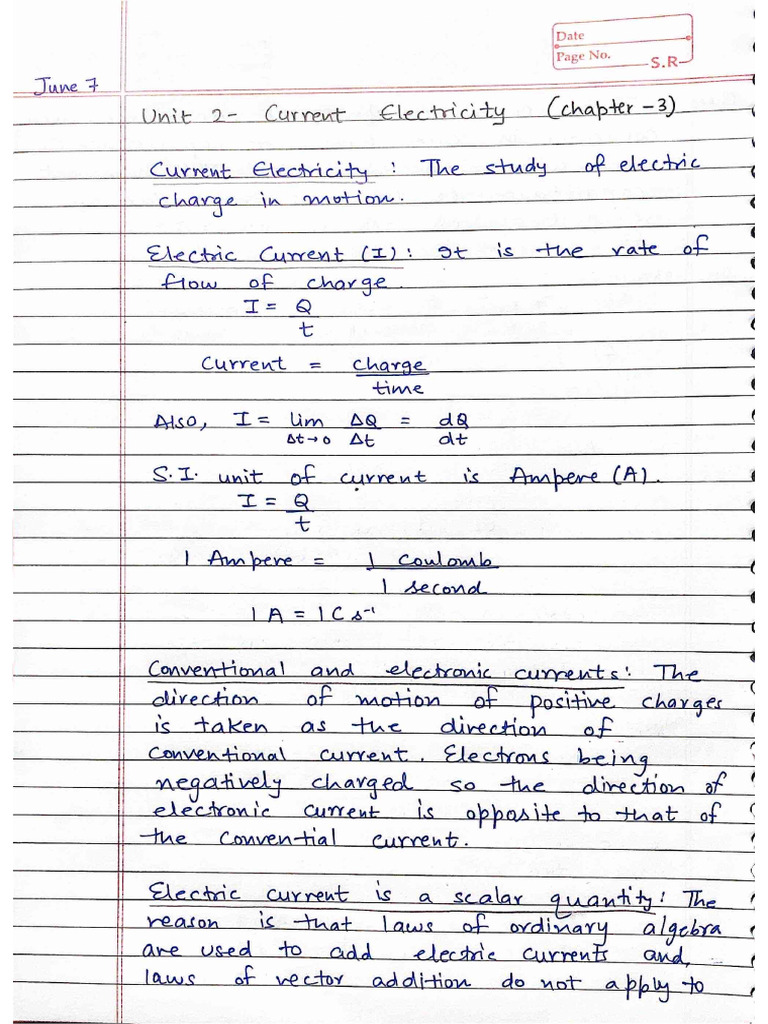 Date
Page No.
S.R
June 7
Unit 2- Current Electricity (Chapter -3)
Current Electricity : The study of electric
charge in motion.
Electric Current (I) : It is the rate of
flow of charge.
I = Q
t
Current = charge
time
Also, I = lim ΔQ = dQ
Δt→0 Δt dt
S.I. unit of current is Ampere (A).
I = Q
t
1 Ampere = 1 coulomb
1 second
1 A = 1 C s⁻¹
Conventional and electronic currents: The
direction of motion of positive charges
is taken as the direction of
conventional current. Electrons being
negatively charged so the direction of
electronic current is opposite to that of
the convential current.
Electric current is a scalar quantity: The
reason is that laws of ordinary algebra
are used to add electric currents and,
laws of vector addition do not apply to